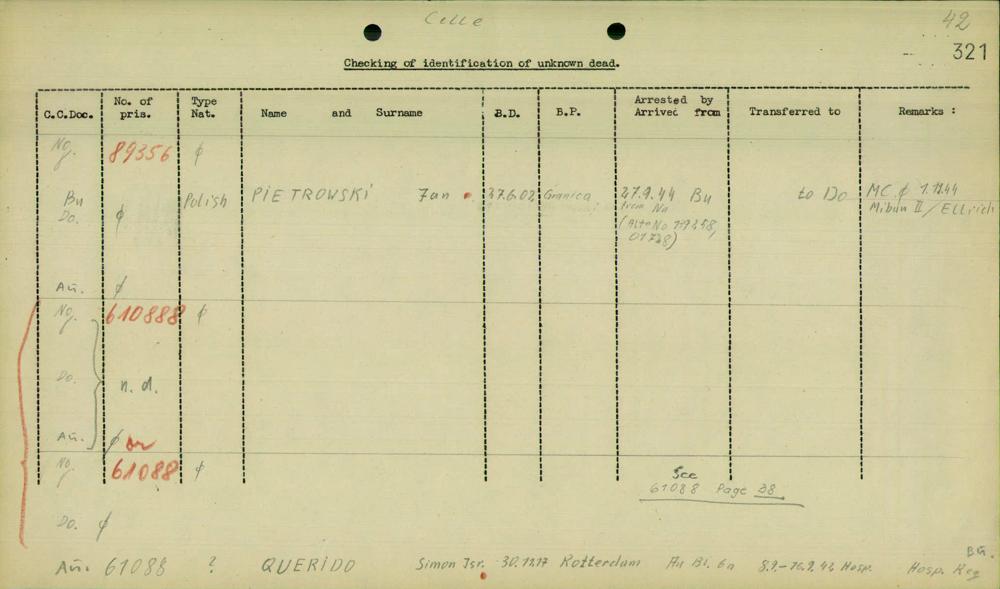 Celle
42
321
Checking of identification of unknown dead.
C.C.Doc. No. of pris. Type Nat. Name and Surname B.D. B.P. Arrested by Arrived from Transferred to Remarks :
89356 ∮
Bu Polish PIETROWSKI Jan 27.6.02 Granica 27.9.44 Bu to Do MC ∮ 1.11.44
Do. ∮ from Na Mibau II / Ellrich
Au. ∮
610888 ∮
Do. n. d.
Au. ∮ or
61088 ∮
See
61088 Page 38
Do. ∮
Bu.
Au. 61088 ? QUERIDO Simon Isr. Rotterdam Au Bl. 6a Hosp. Hosp. Reg